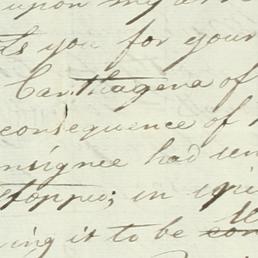 upon my
ts you for your
Carthagena of
consequence of
nsignee had sen
topped; in spi
ing it to be con